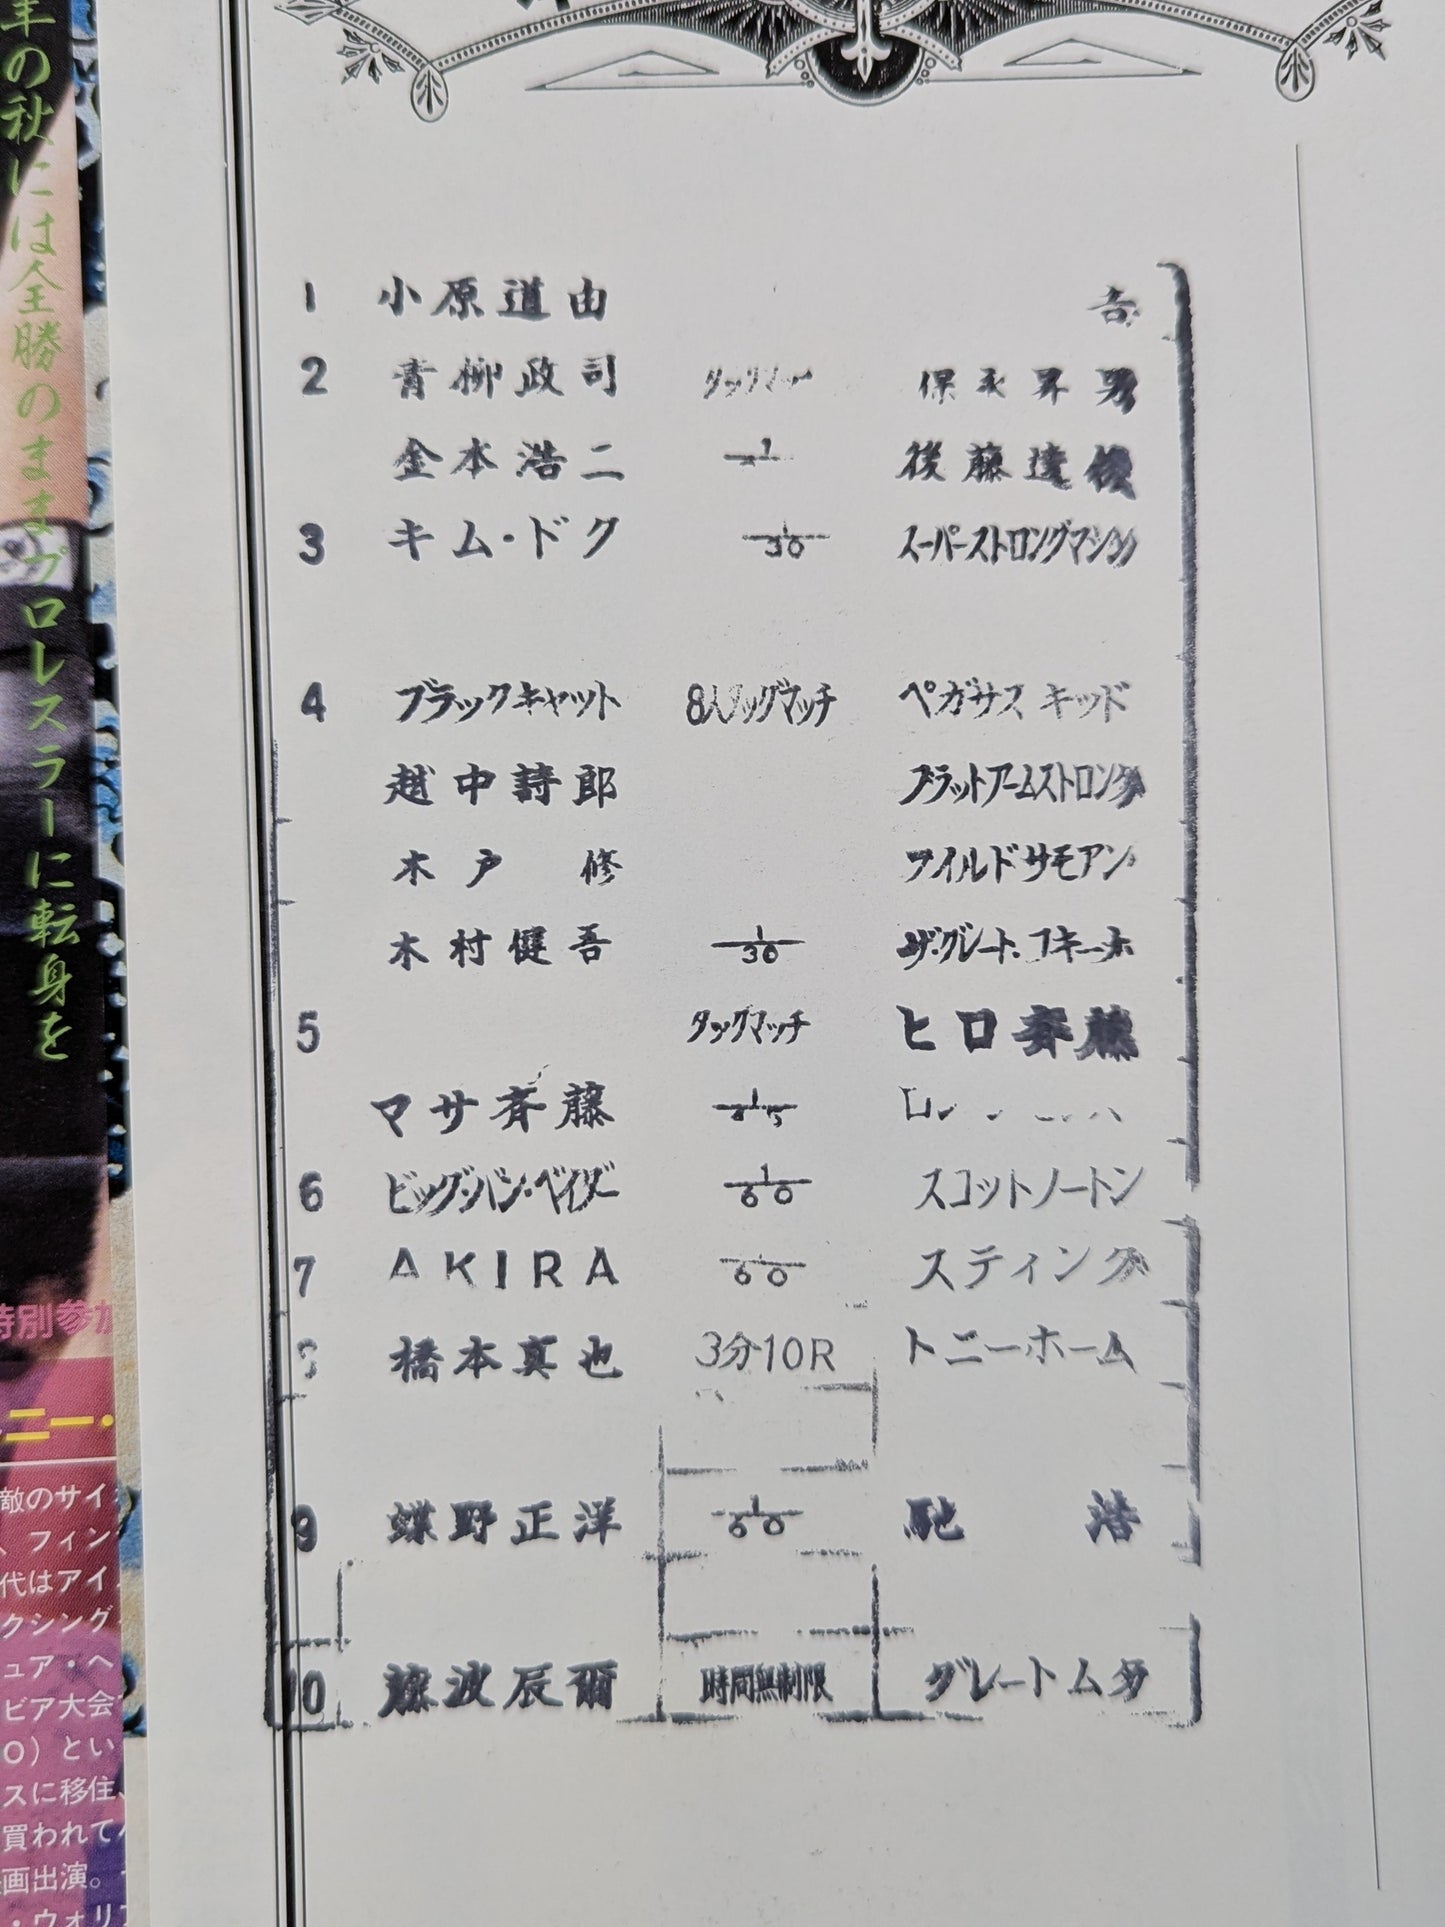 年の秋には全勝のままプロレスラーに転身を
特別参加
ニー・
敵のサイ
、フィン
代はアイ
クシング
ュア・ヘ
ビア大会
O）とい
スに移住、
買われて
画出演。
・ウォリ
1 小原道由
2 青柳政司 タッグマッチ 保永昇男
金本浩二 1 後藤達俊
3 キム・ドク 1/30 スーパーストロングマシン
4 ブラックキャット 8人タッグマッチ ペガサスキッド
越中詩郎 ブラットアームストロング
木戸修 ワイルドサモアン
木村健吾 1/30 ザ・グレート・コキーナ
5 タッグマッチ ヒロ斉藤
マサ斉藤 1/45
6 ビッグ・バン・ベイダー 1/60 スコットノートン
7 AKIRA 1/60 スティング
8 橋本真也 3分10R トニーホーム
9 蝶野正洋 1/60 馳浩
10 藤波辰爾 時間無制限 グレートムタ